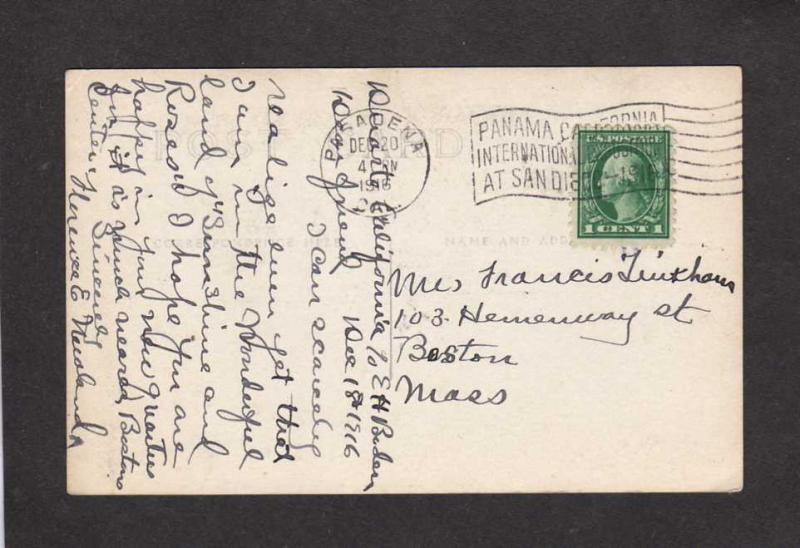 POST CARD
PASADENA
DEC 20
4 PM
1916
CAL
PANAMA CALIFORNIA
INTERNATIONAL
AT SAN DIEGO
U.S. POSTAGE
1 CENT 1
CORRESPONDENCE HERE
NAME AND ADD
Duarte California % E H
Dear Friend Dec 18th 1916
I can scarcely
realize even yet that
I am in the Wonderful
land of "Sunshine and
Roses" I hope you are
happy in your new quarters
for it is much nearer Boston's
Center. Sincerely
Florence E
Mrs Francis Tinkham
103 Hemenway St
Boston
Mass